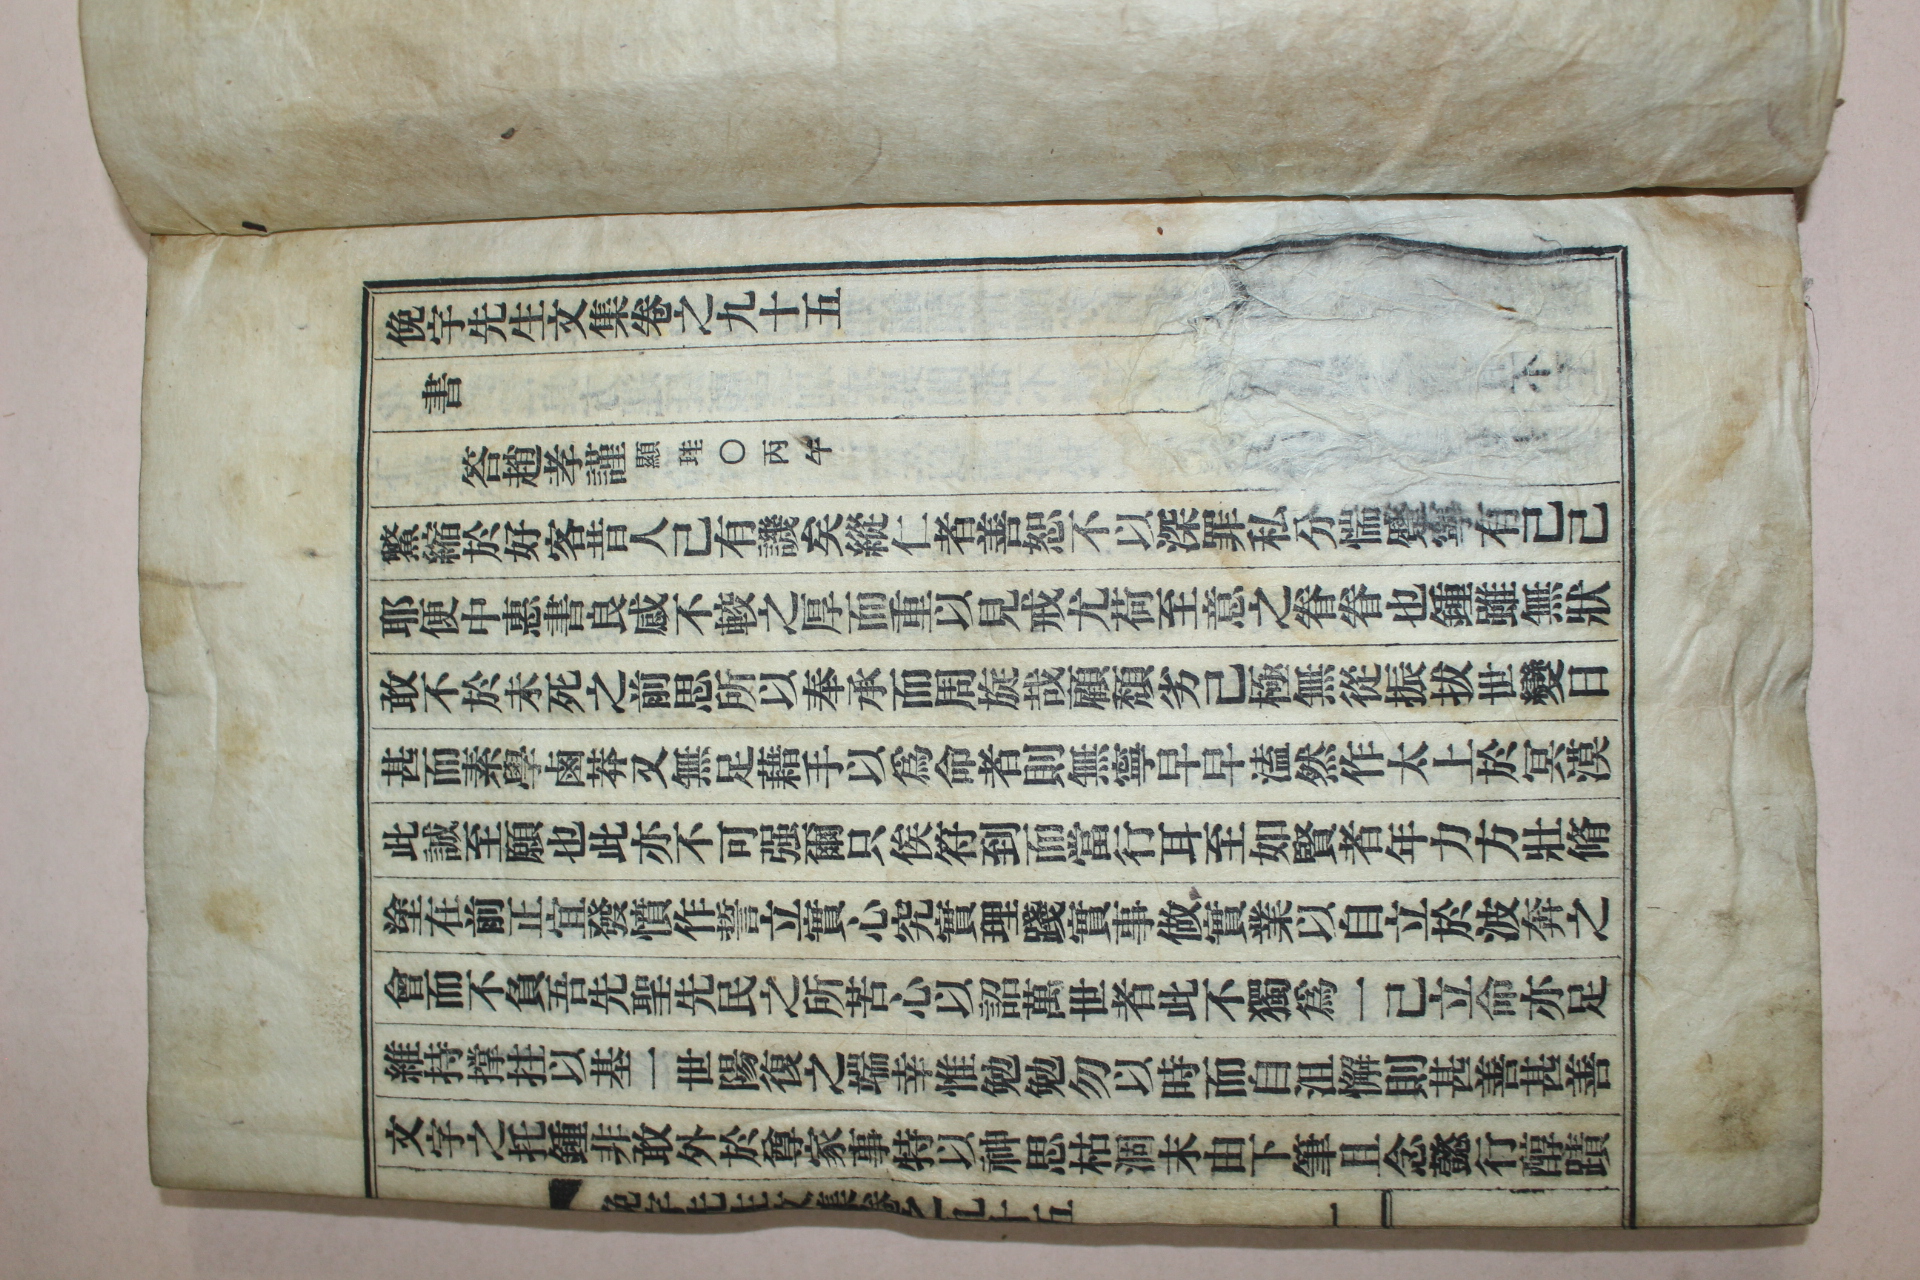 俛宇先生文集卷之九十五
書
答趙孝謹顯珪○丙午
繁縮於好客昔人已有譏矣縱仁者善恕不以深罪私分惴有已已
耶便中惠書良感不較之厚而重以見戒尤荷至意之眷眷也鍾雖無狀
敢不於未死之前思所以奉承而周旋哉顧頹劣已極無從振拔世變日
甚而素學鹵莽又無足藉手以爲命者則無寧早早溘然作太上於冥漠
此誠至願也此亦不可强爾只俟符到而當行耳至如賢者年力方壯脩
塗在前正宜發憤作誓立實心究實理踐實事做實業以自立於波奔之
會而不負吾先聖先民之所苦心以詔萬世者此不獨爲一己立命亦足
維持撑拄以基一世陽復之端幸惟勉勉勿以時而自沮懈則甚善甚善
文字之托鍾非敢外於尊家事特以神思枯涸未由下筆且念懿行醇蹟
俛宇先生文集卷之九十五　一